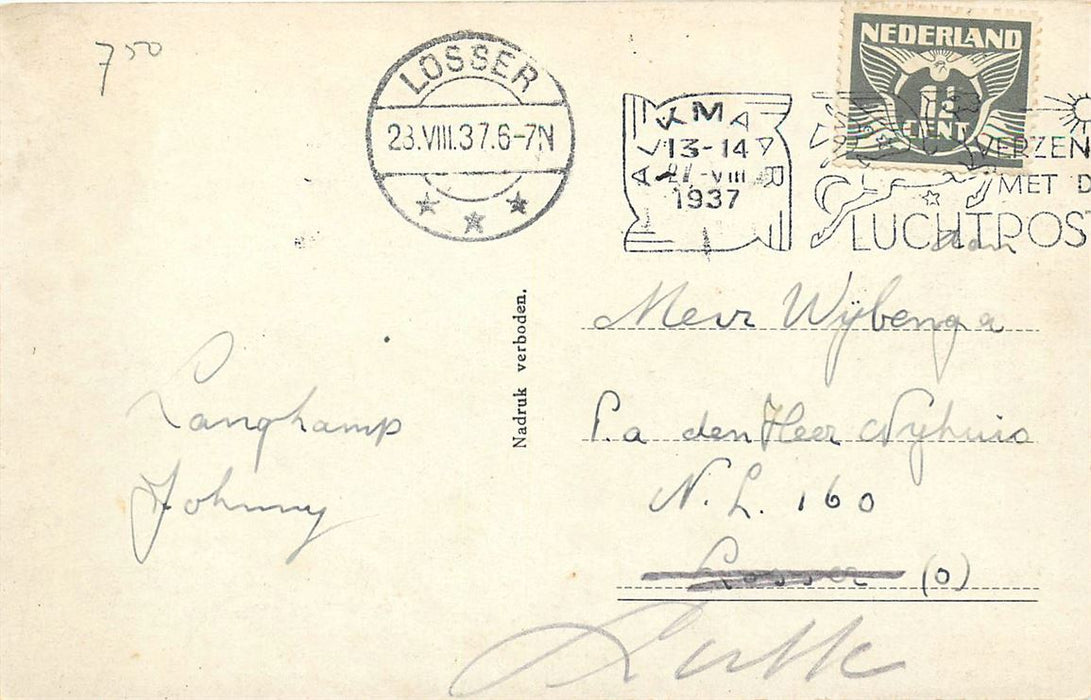 750
LOSSER
28.VIII.37.6-7N
ALKMAAR
13-14
27-VIII
1937
NEDERLAND
1½
CENT
VERZEN
MET D
LUCHTPOS
aan
Mevr Wijbenga
P.a den Heer Nijhuis
N.L. 160
Losser (O)
Nadruk verboden.
Langkamp
Johnny